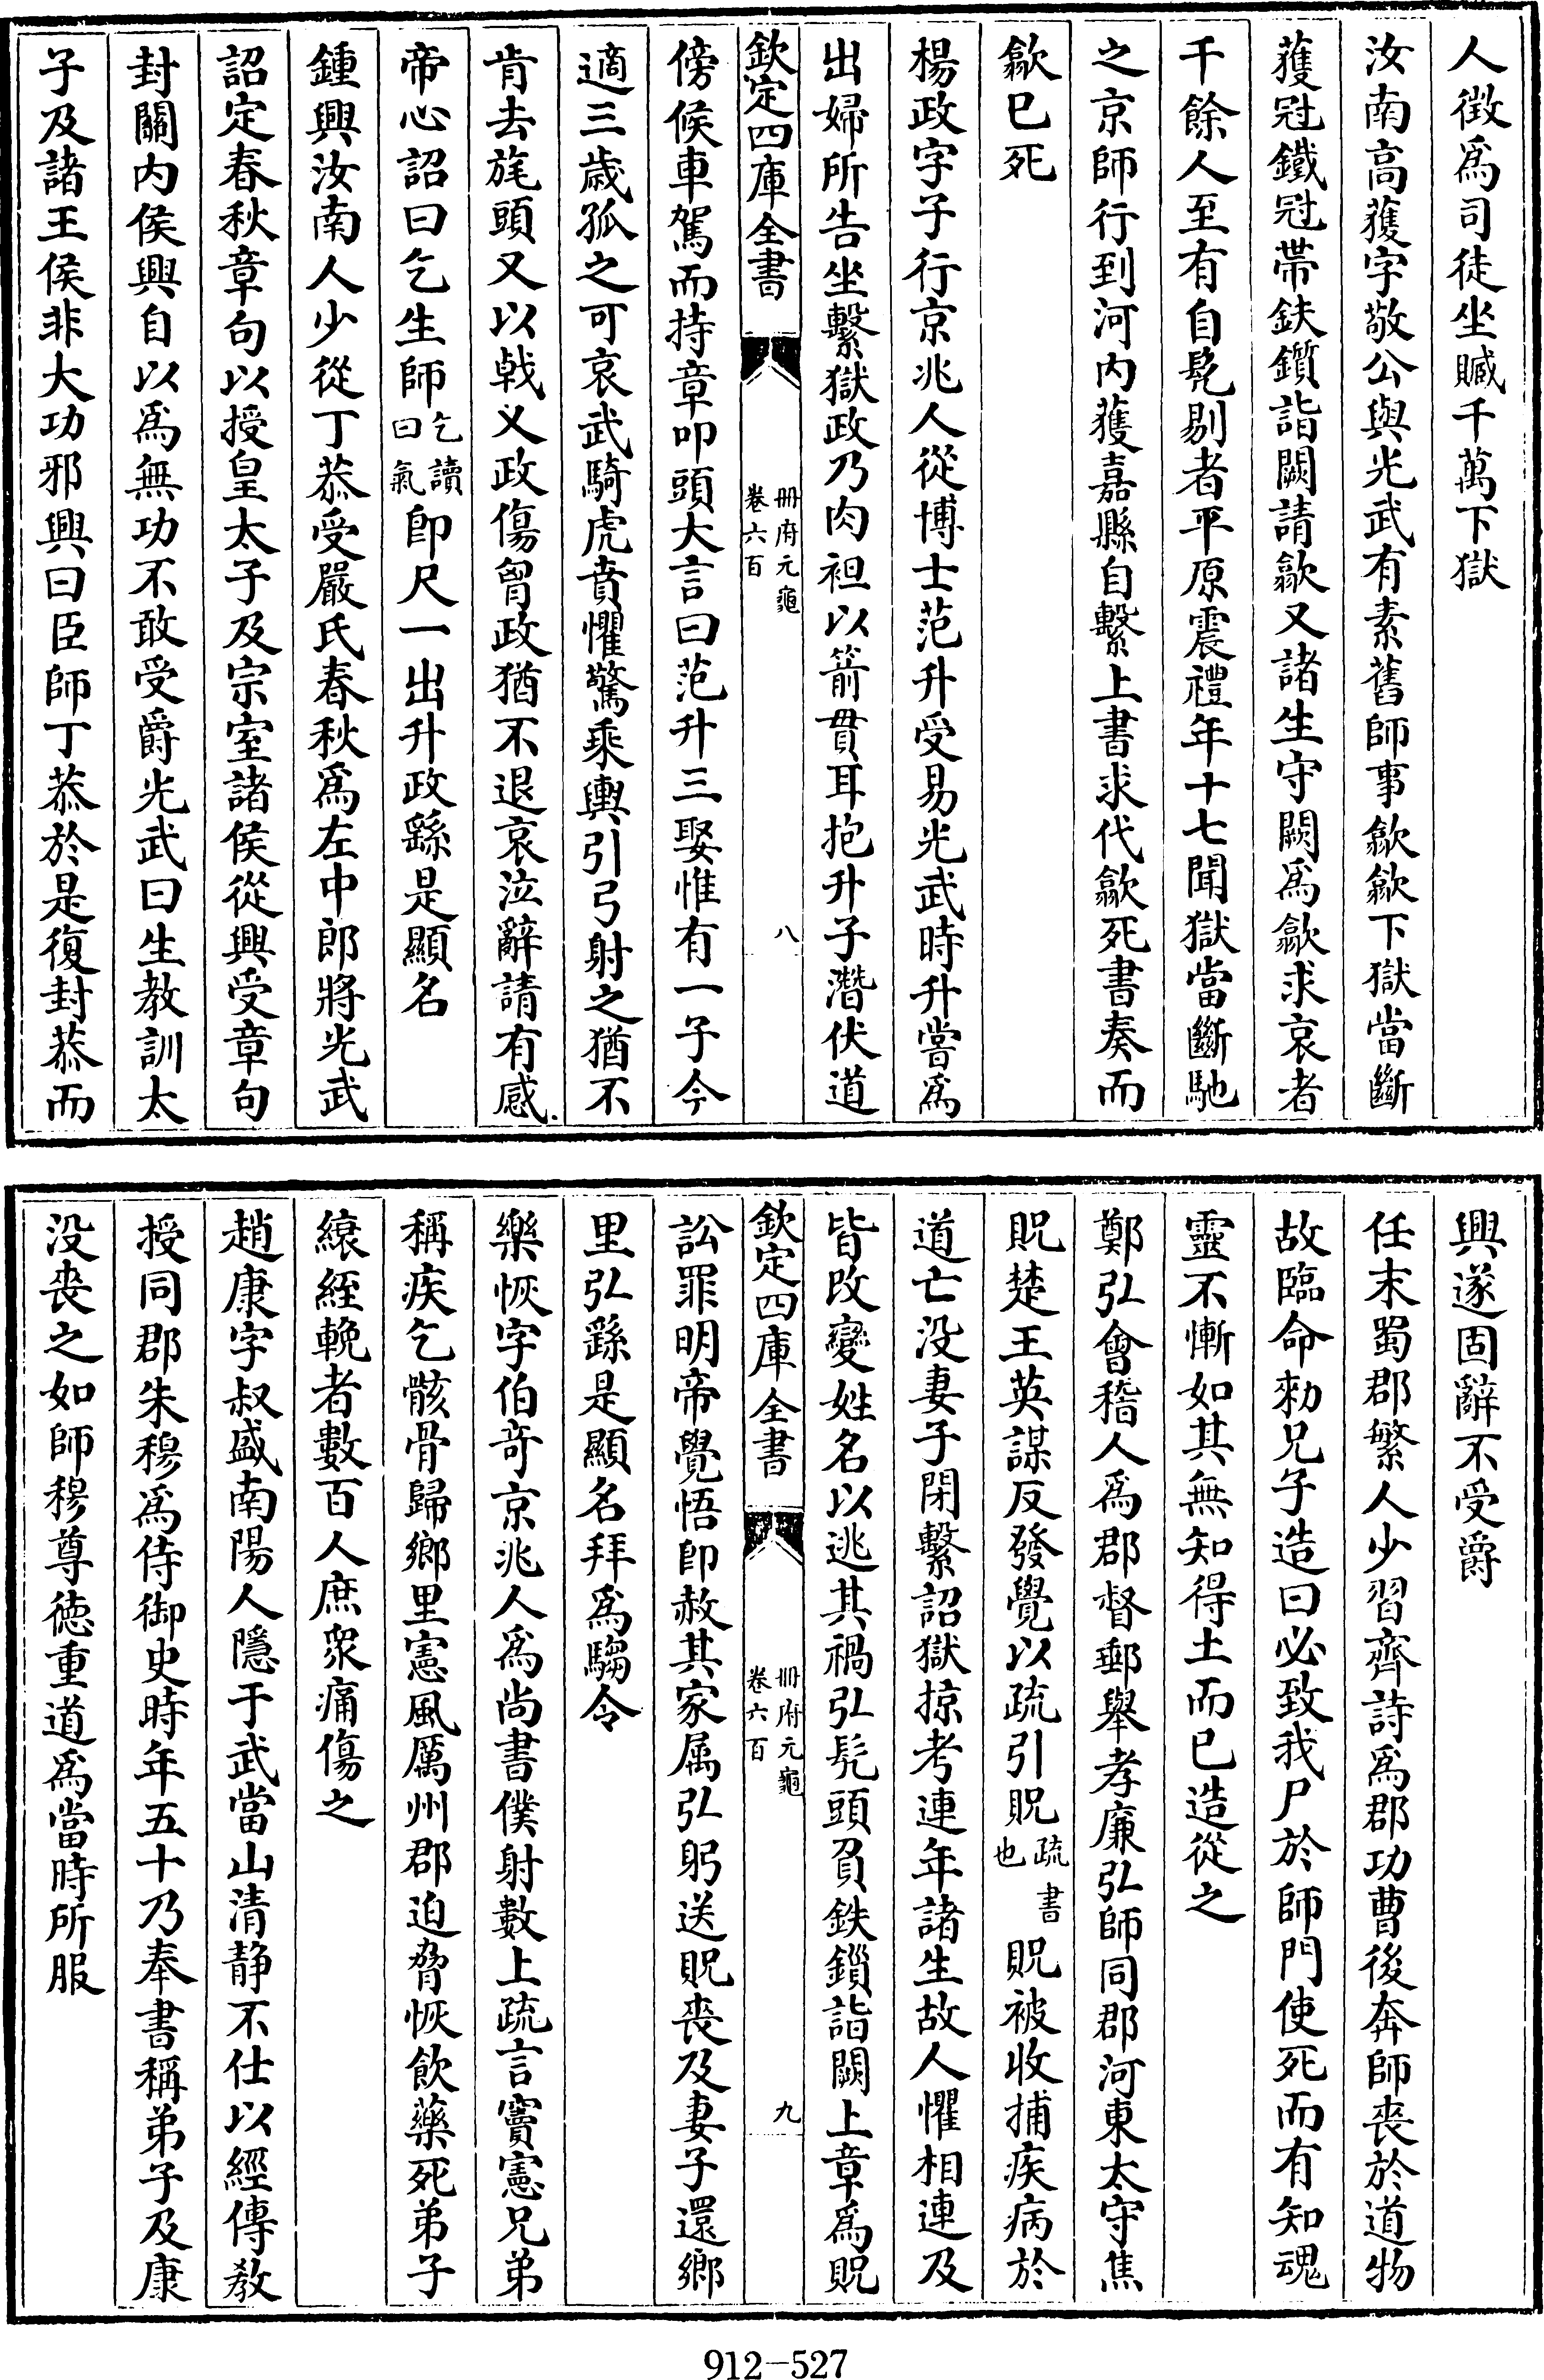 人徴爲司徒坐贓千萬下獄
汝南高獲字敬公與光武有素舊師事歙歙下獄當斷
獲冠鐵冠帶鈇鑕詣闕請歙又諸生守闕爲歙求哀者
千餘人至有自髡剔者平原震禮年十七聞獄當斷馳
之京師行到河内獲嘉縣自繫上書求代歙死書奏而
歙已死
楊政字子行京兆人從博士范升受易光武時升嘗爲
出婦所告坐繫獄政乃肉袒以箭貫耳抱升子潛伏道
欽定四庫全書
冊府元龜
卷六百
八
傍候車駕而持章叩頭大言曰范升三娶惟有一子今
適三歳孤之可哀武騎虎賁懼驚乘輿引弓射之猶不
肯去旄頭又以戟义政傷胷政猶不退哀泣辭請有感
帝心詔曰乞生師乞讀曰氣即尺一出升政繇是顯名
鍾興汝南人少從丁恭受嚴氏春秋爲左中郎將光武
詔定春秋章句以授皇太子及宗室諸侯從興受章句
封關内侯興自以爲無功不敢受爵光武曰生教訓太
子及諸王侯非大功邪興曰臣師丁恭於是復封恭而
興遂固辭不受爵
任末蜀郡繁人少習齊詩爲郡功曹後奔師喪於道物
故臨命勑兄子造曰必致我尸於師門使死而有知魂
靈不慚如其無知得土而已造從之
鄭弘會稽人爲郡督郵舉孝廉弘師同郡河東太守焦
貺楚王英謀反發覺以疏引貺疏書也貺被收捕疾病於
道亡没妻子閉繫詔獄掠考連年諸生故人懼相連及
皆改變姓名以逃其禍弘髠頭負鈇鑕詣闕上章爲貺
欽定四庫全書
冊府元龜
卷六百
九
訟罪明帝覺悟即赦其家屬弘躬送貺喪及妻子還鄉
里弘繇是顯名拜爲騶令
樂恢字伯奇京兆人爲尚書僕射數上疏言竇憲兄弟
稱疾乞骸骨歸鄉里憲風厲州郡迫脅恢飲藥死弟子
縗絰輓者數百人庶衆痛傷之
趙康字叔盛南陽人隱于武當山清静不仕以經傳教
授同郡朱穆爲侍御史時年五十乃奉書稱弟子及康
没喪之如師穆尊徳重道爲當時所服
912—527